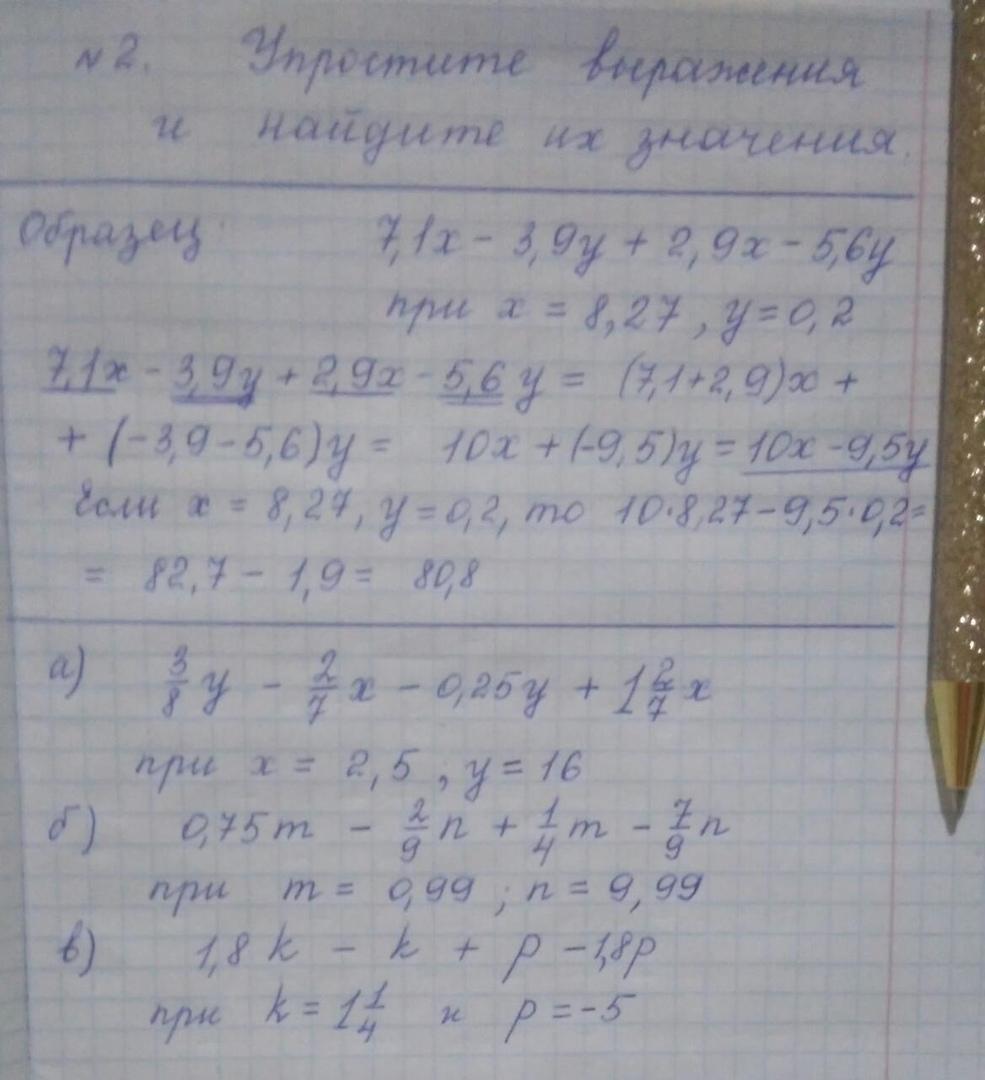 №2. Упростите выражения
и найдите их значения.
Образец: 7,1x - 3,9y + 2,9x - 5,6y
при x = 8,27, y = 0,2
7,1x - 3,9y + 2,9x - 5,6y = (7,1+2,9)x +
+ (-3,9-5,6)y = 10x + (-9,5)y = 10x - 9,5y
Если x = 8,27, y = 0,2, то 10·8,27 - 9,5·0,2 =
= 82,7 - 1,9 = 80,8
а) 3/8 y - 2/7 x - 0,25y + 1 2/7 x
при x = 2,5, y = 16
б) 0,75m - 2/9 n + 1/4 m - 7/9 n
при m = 0,99; n = 9,99
в) 1,8k - k + p - 1,8p
при k = 1 1/4 и p = -5